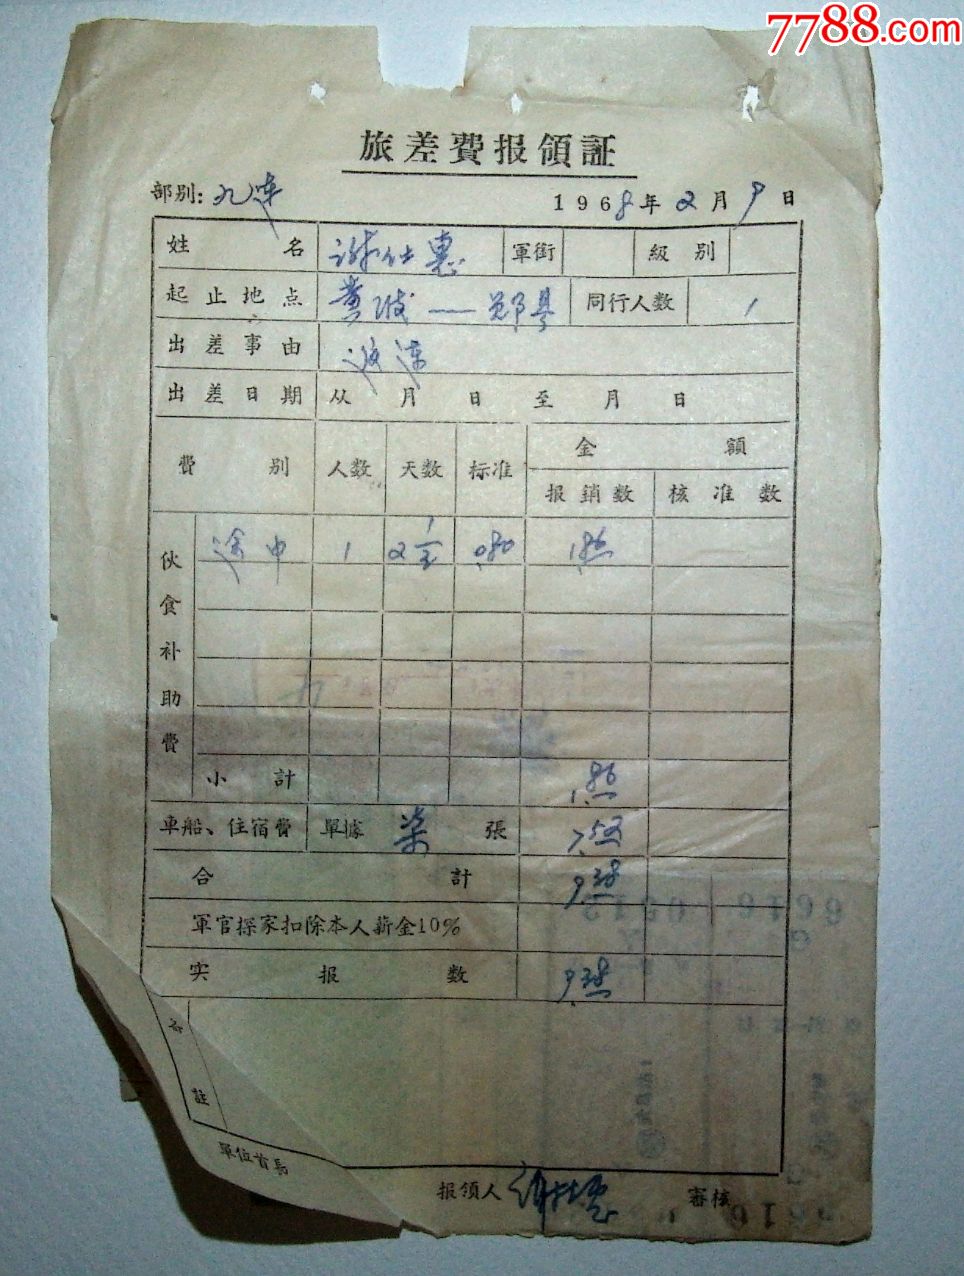 7788.com
旅差費报領証
部别: 九连 1968年2月9日
姓名 谢仕惠 軍銜 級别
起止地点 黄陂——郑县 同行人数 1
出差事由 返连
出差日期 从 月 日 至 月 日
費别 人数 天数 标准 金額
报銷数 核准数
伙食补助費
途中 1 .80 1.86
小計 1.86
車船、住宿費 單據 柒 張 7.52
合計 9.38
軍官探家扣除本人薪金10%
实报数 9.38
备註
單位首長
报領人 谢仕惠 審核